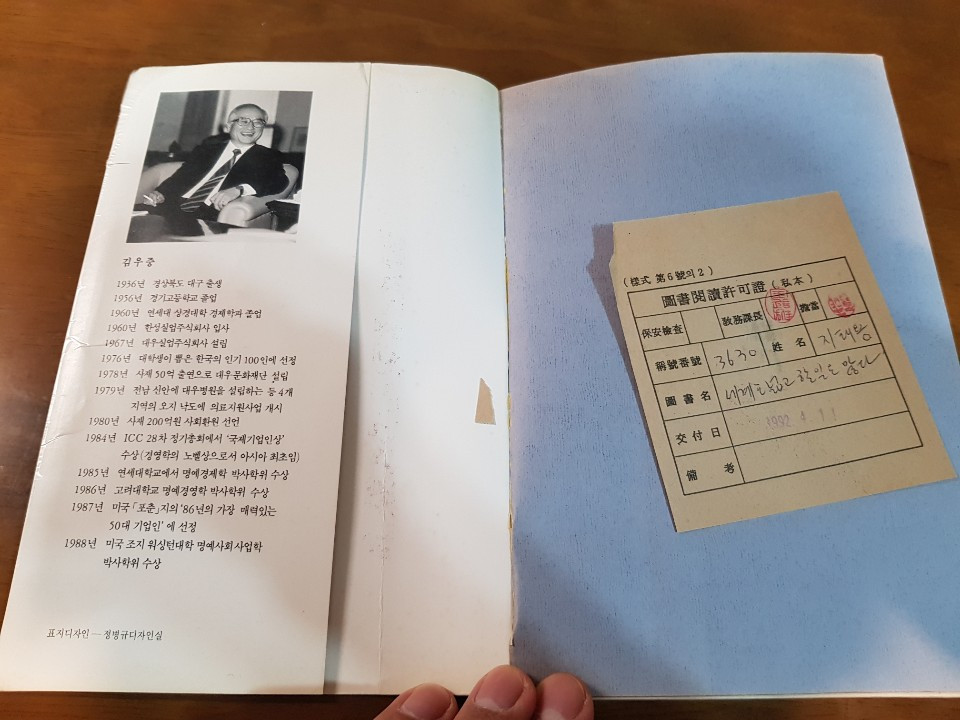 김우중
1936년 경상북도 대구 출생
1956년 경기고등학교 졸업
1960년 연세대 상경대학 경제학과 졸업
1960년 한성실업주식회사 입사
1967년 대우실업주식회사 설립
1976년 대학생이 뽑은 한국의 인기 100인에 선정
1978년 사재 50억 출연으로 대우문화재단 설립
1979년 전남 신안에 대우병원을 설립하는 등 4개
지역의 오지 낙도에 의료지원사업 개시
1980년 사재 200억원 사회환원 선언
1984년 ICC 28차 정기총회에서 '국제기업인상'
수상(경영학의 노벨상으로서 아시아 최초임)
1985년 연세대학교에서 명예경제학 박사학위 수상
1986년 고려대학교 명예경영학 박사학위 수상
1987년 미국「포춘」지의 '86년의 가장 매력있는
50대 기업인'에 선정
1988년 미국 조지 워싱턴대학 명예사회사업학
박사학위 수상
표지디자인―정병규디자인실
(樣式 第6號의2)
圖書閱讀許可證(私本)
保安檢査 敎務課長 擔當
稱號番號 3630 姓名 지태환
圖書名 세계는넓고 할일도 많다
交付日 1992. 4. 11
備考